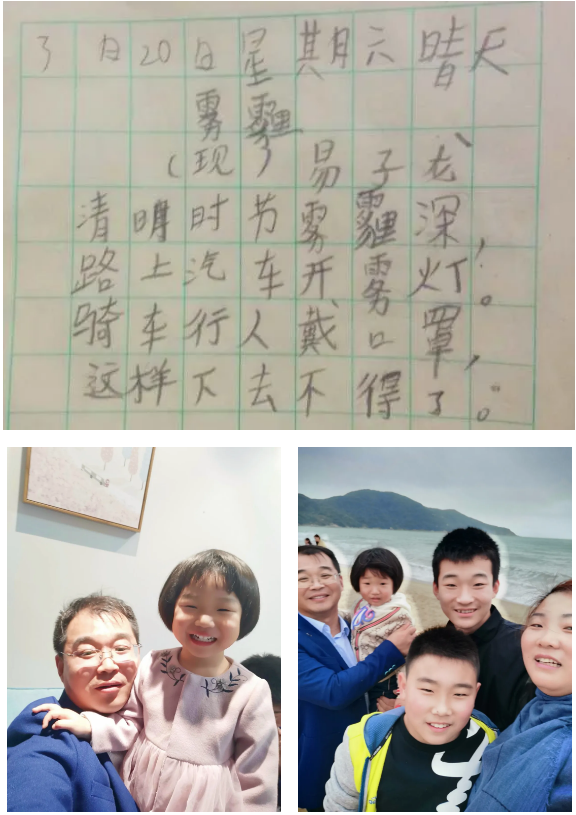 3月20日星期六晴天
雾霾
(现)易子龙
清明时节雾霾深，
路上汽车开雾灯。
骑车行人戴口罩，
这样下去不得了。